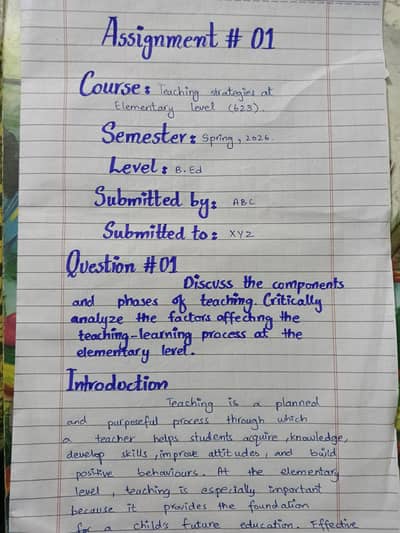 Assignment # 01
Course: Teaching strategies at
Elementary level (623).
Semester: Spring, 2026.
Level: B.Ed
Submitted by: ABC
Submitted to: XYZ
Question #01
Discuss the components
and phases of teaching. Critically
analyze the factors affecting the
teaching-learning process at the
elementary level.
Introduction
Teaching is a planned
and purposeful process through which
a teacher helps students acquire, knowledge,
develop skills, improve attitudes, and build
positive behaviours. At the elementary
level, teaching is especially important
because it provides the foundation
for a child's future education. Effective